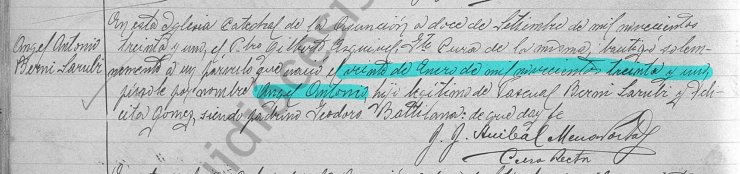 Angel Antonio
Berni Sarubi
En esta Iglesia Catedral de la Asunción, a doce de Setiembre de mil novecientos
treinta y uno, el Pbro Gilberto Esquivel, Tte Cura de la misma, bautizó solem-
nemente a un párvulo que nació el veinte de Enero de mil novecientos treinta y uno
púsole por nombre Angel Antonio, hijo legítimo de Pascual Berni Sarubi y Feli-
cita Gómez, siendo padrino Teodoro Battilana: de que doy fe
Aníbal Mena Porta
Cura Rector